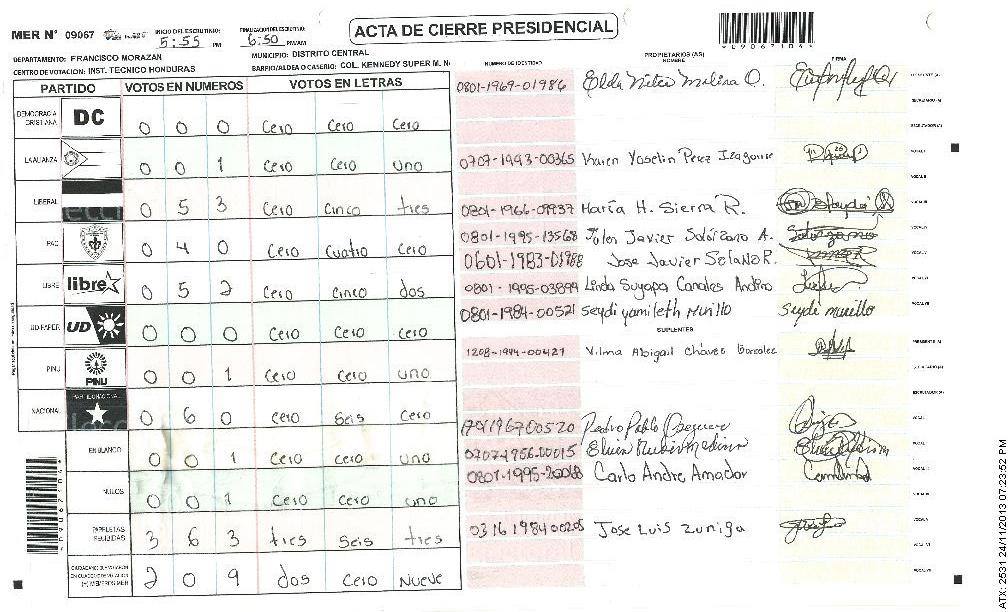 MER N° 09067
INICIO DEL ESCRUTINIO: 5:55 PM
FINALIZACION DEL ESCRUTINIO: 6:50 PM/AM
ACTA DE CIERRE PRESIDENCIAL
*090671064*
DEPARTAMENTO: FRANCISCO MORAZAN
MUNICIPIO: DISTRITO CENTRAL
CENTRO DE VOTACION: INST. TECNICO HONDURAS
BARRIO/ALDEA O CASERIO: COL. KENNEDY SUPER M. N
PARTIDO VOTOS EN NUMEROS VOTOS EN LETRAS
DEMOCRACIA CRISTIANA DC 0 0 0 Cero Cero Cero
LA ALIANZA 0 0 1 Cero Cero uno
LIBERAL 0 5 3 Cero Cinco tres
PAC 0 4 0 Cero Cuatro Cero
LIBRE libre 0 5 2 Cero Cinco dos
UD-FAPER UD 0 0 0 Cero Cero Cero
PINU PINU 0 0 1 Cero Cero uno
NACIONAL PARTIDO NACIONAL 0 6 0 Cero Seis Cero
EN BLANCO 0 0 1 Cero Cero uno
NULOS 0 0 1 Cero Cero uno
PAPELETAS RECIBIDAS 3 6 3 tres Seis tres
2 0 9 dos Cero Nueve
NUMERO DE IDENTIDAD PROPIETARIOS (AS) NOMBRE FIRMA
0801-1969-01986 Elda Molina O.
0707-1993-00365 Karen Yoselin Perez Izaguirre
0801-1966-09937 María H. Sierra R.
0801-1995-13568 Javier Solórzano A.
0601-1983-01988 Jose Javier Solano R.
0801-1995-03899 Linda Suyapa Canales Andino
0801-1984-00521 Seydi yamileth Murillo Seydi murillo
SUPLENTES
1208-1994-00427 Vilma Abigail Chávez Gonzalez
Pedro Pablo
0801-1995-20068 Carlo Andre Amador
0316 1984 00205 Jose Luis Zuniga
ATX: 2531 24/11/2013 07:23:52 PM